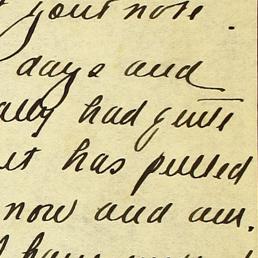 your note.
days and
ally had quite
it has pulled
now and am.